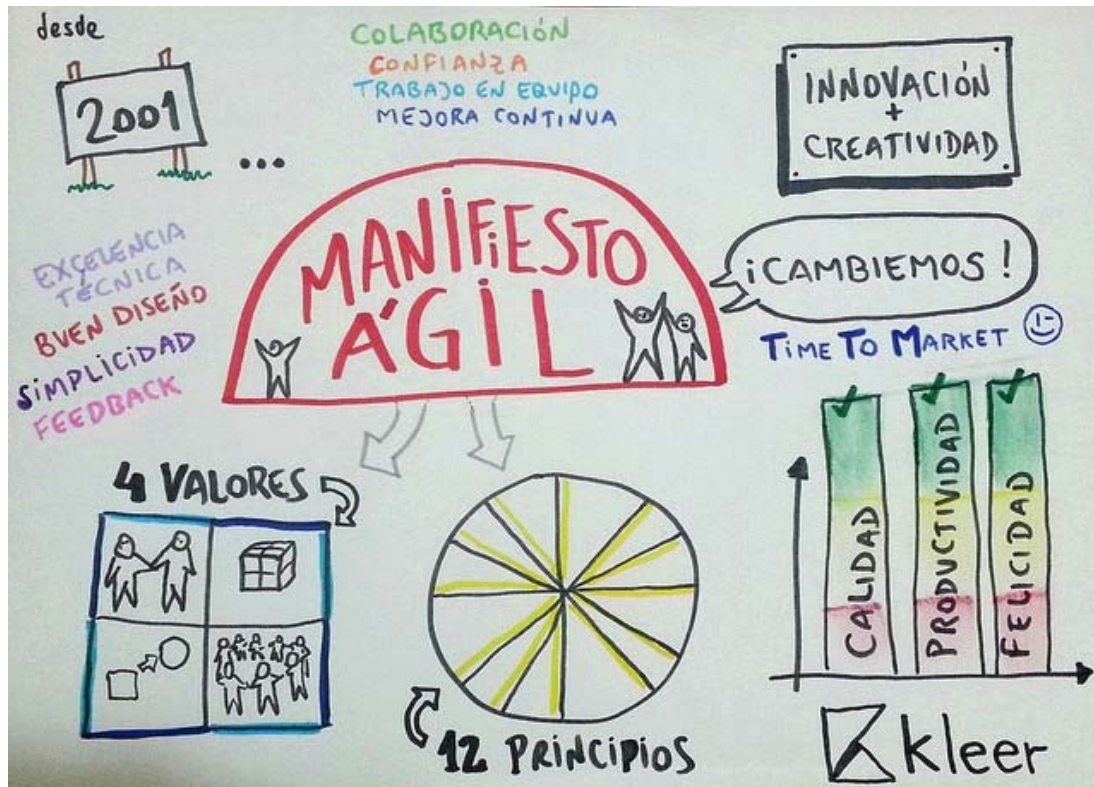 desde
2001
...
COLABORACIÓN
CONFIANZA
TRABAJO EN EQUIPO
MEJORA CONTINUA
INNOVACIÓN
+
CREATIVIDAD
EXCELENCIA
TÉCNICA
BUEN DISEÑO
SIMPLICIDAD
FEEDBACK
MANIFIESTO
ÁGIL
¡CAMBIEMOS!
TIME TO MARKET
4 VALORES
12 PRINCIPIOS
CALIDAD
PRODUCTIVIDAD
FELICIDAD
kleer